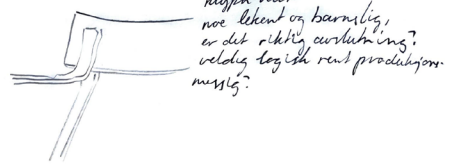 noe lekent og barnslig,
er det riktig avslutning?
veldig logisk rent produksjons-
messig?